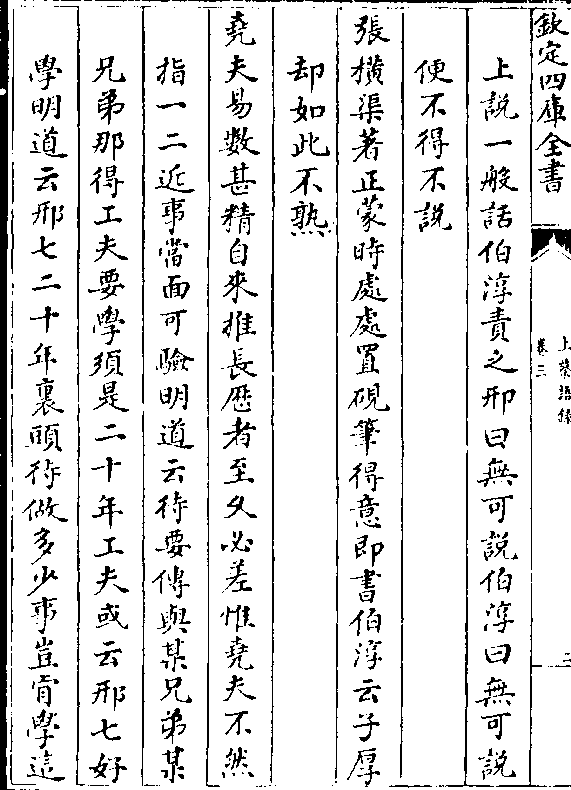 欽定四庫全書
上蔡語録
卷三
上說一般話伯淳責之邢曰無可說伯淳曰無可說
便不得不說
張橫渠著正蒙時處處置硯筆得意即書伯淳云子厚
却如此不熟
堯夫易數甚精自來推長厯者至久必差惟堯夫不然
指一二近事當面可驗明道云待要傳與某兄弟某
兄弟那得工夫要學須是二十年工夫或云邢七好
學明道云邢七二十年裏頭待做多少事豈肯學這